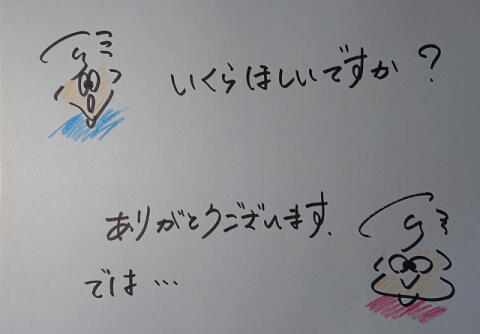 いくらほしいですか?
ありがとうございます.
では…